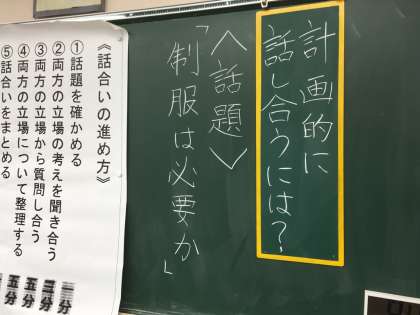 計画的に
話し合うには?
〈話題〉
「制服は必要か」
《話合いの進め方》
①話題を確かめる
②両方の立場の考えを聞き合う
③両方の立場から質問し合う
④両方の立場について整理する
⑤話合いをまとめる
分
三分
五分
五分